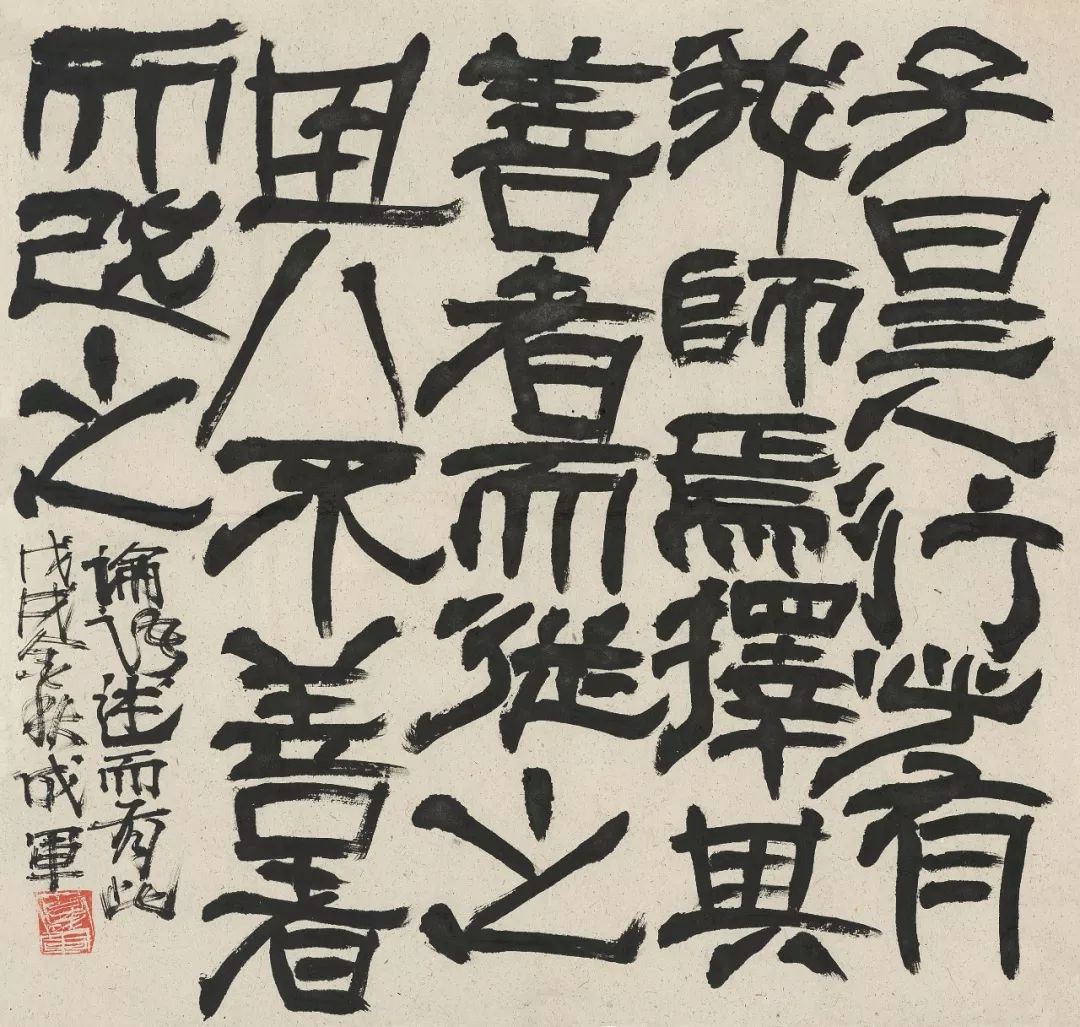 子曰三人行必有
我師焉擇其
善者而從之
其不善者
而改之
論語述而有此
戊戌金秋成軍